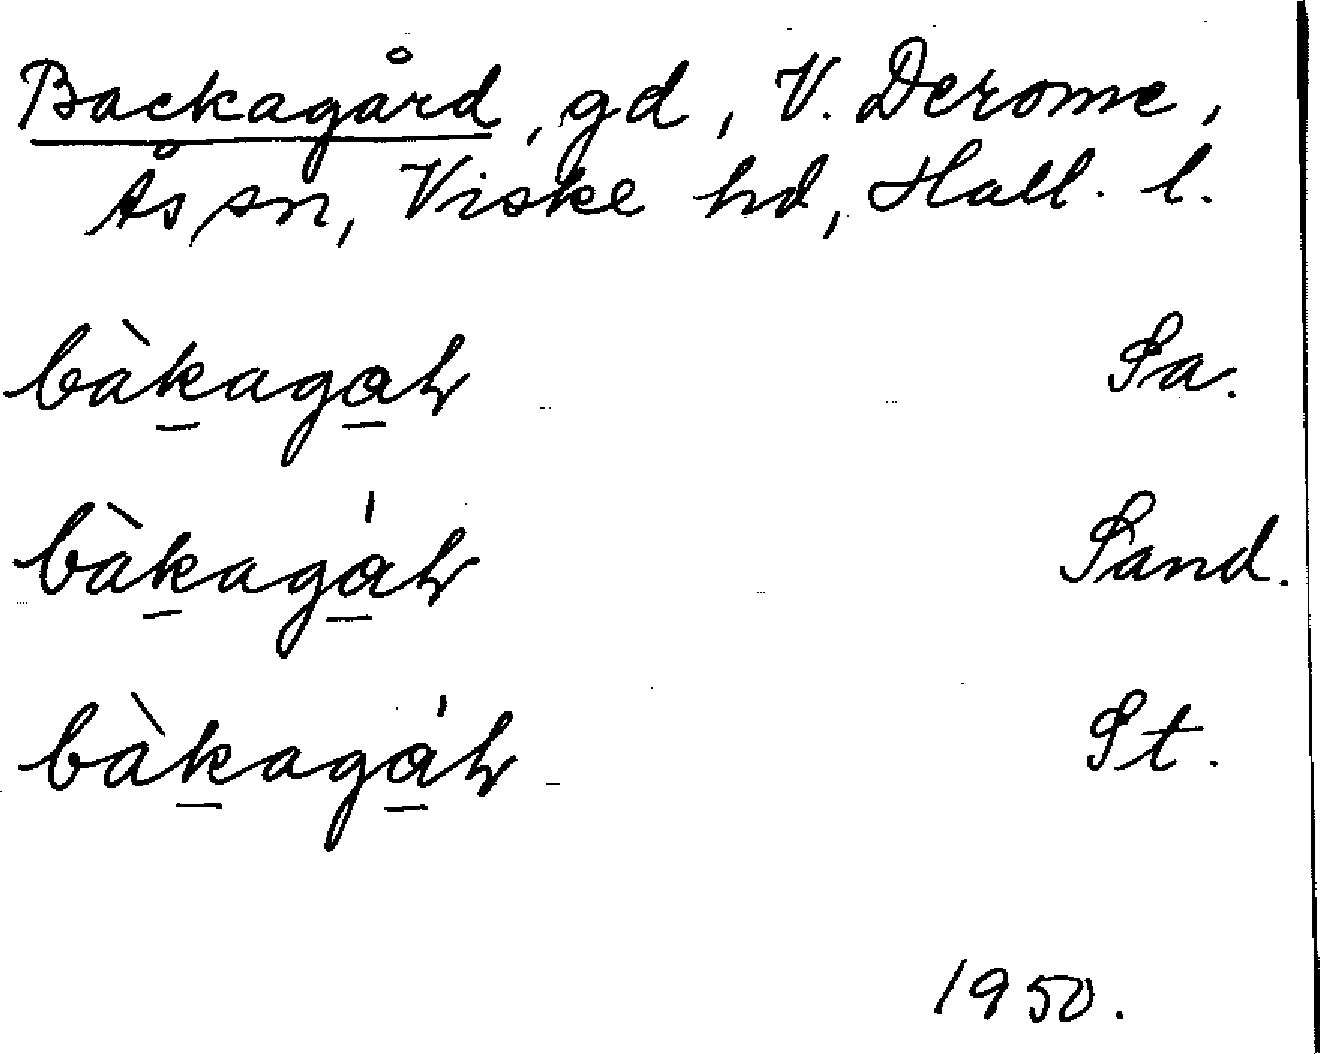 Backagård, gd, V. Derome,
Ås sn, Viske hd, Hall. l.
bàkagah Sa.
bàkagáh Sand.
bàkagáh St.
1950.